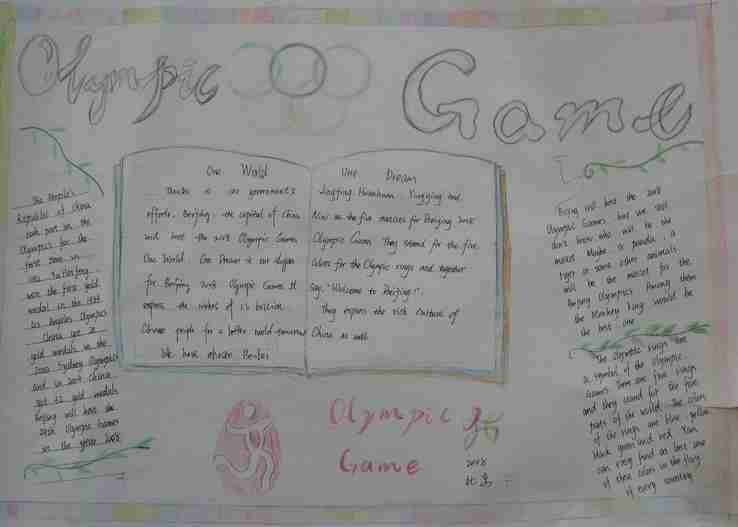 Olympic Game
The People's
Republic of China
took part in the
Olympics for the
first time in
Xu Haifeng
won the first gold
medal in the 1984
Los Angeles Olympics
China got 28
gold medals in the
2000 Sydney Olympics
and in 2004 China
got 32 gold medals
Beijing will host the
29th Olympic Games
in the year 2008
One World One Dream
Thanks to our government's
efforts. Beijing. the capital of China
will host the 2008 Olympic Games
One World One Dream is our slogan
for Beijing 2008 Olympic Games It
express the wishes of 1.3 billion
Chinese people for a better world tomorrow
We have chosen Beibei
Jingjing Huanhuan Yingying and
Nini as the five mascots for Beijing 2008
Olympic Games They stand for the five
colors for the Olympic rings and together
say "Welcome to Beijing!".
They express the rich culture of
China as well
Beijing will host the 2008
Olympic Games but we still
don't know who will be the
mascot Maybe a panda a
tiger or some other animals
will be the mascot for the
Beijing Olympics Among them
the Monkey King would be
the best one
The Olympic rings are
a symbol of the Olympic
Games There are five rings
and they stand for the five
parts of the world. The colors
of the rings are blue yellow
black green and red You
can ring find at least one
of these colors in the flag
of every country
Olympic
Game
2008